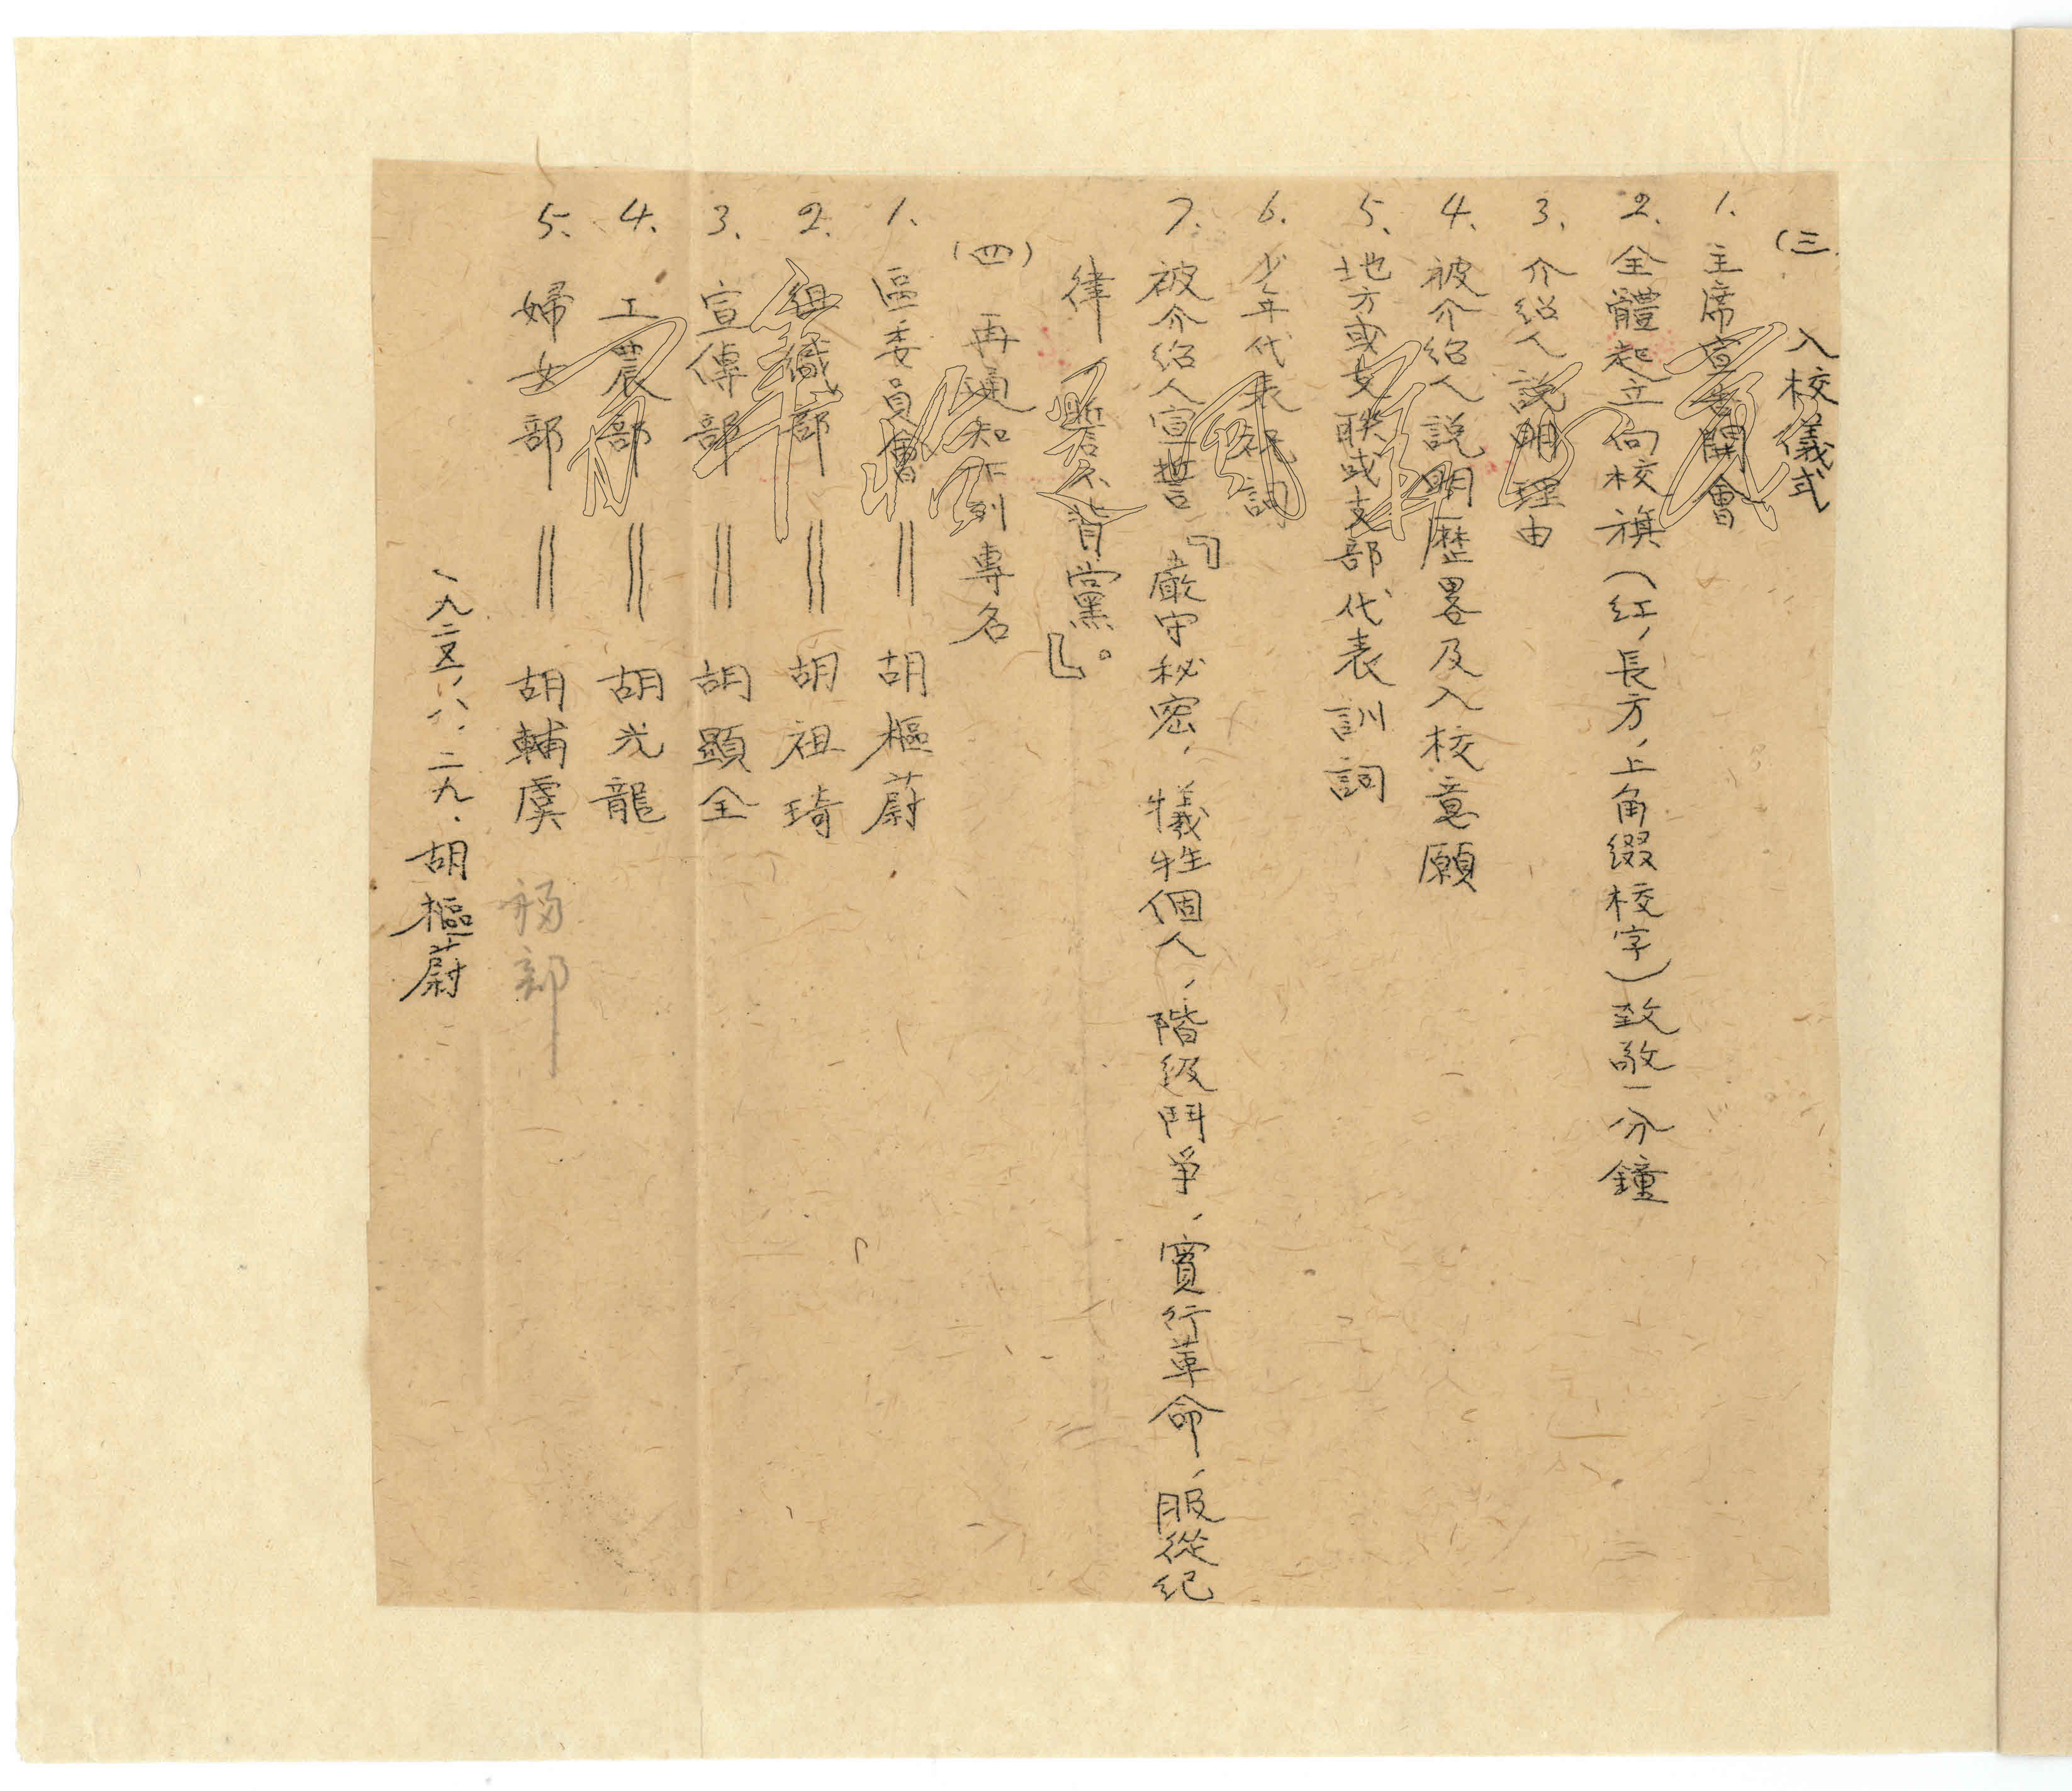 (三) 入校儀式
1. 主席宣書開會
2. 全體起立向校旗(紅,長方,上角綴校字)致敬一分鐘
3. 介紹人說明理由
4. 被介紹人說明歷畧及入校意願
5. 地方或支聯或支部代表訓詞
6. 少年代表祝詞
7. 被介紹人宣誓『嚴守秘密,犧牲個人,階級鬥爭,實行革命,服從紀
律,誓不背黨』。
(四) 再通知下列專名
1. 區委員會=胡樞蔚
2. 組織部=胡祖琦
3. 宣傳部=胡顯全
4. 工農部=胡光龍
5. 婦女部=胡輔虞
一九二五,八.二九.胡樞蔚